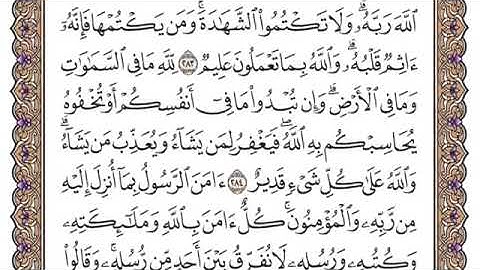 ٱللَّهَ رَبَّهُۥ ۗ وَلَا تَكْتُمُوا۟ ٱلشَّهَٰدَةَ ۚ وَمَن يَكْتُمْهَا فَإِنَّهُۥٓ
ءَاثِمٌ قَلْبُهُۥ ۗ وَٱللَّهُ بِمَا تَعْمَلُونَ عَلِيمٌ ٢٨٣ لِّلَّهِ مَا فِى ٱلسَّمَٰوَٰتِ
وَمَا فِى ٱلْأَرْضِ ۗ وَإِن تُبْدُوا۟ مَا فِىٓ أَنفُسِكُمْ أَوْ تُخْفُوهُ
يُحَاسِبْكُم بِهِ ٱللَّهُ ۖ فَيَغْفِرُ لِمَن يَشَآءُ وَيُعَذِّبُ مَن يَشَآءُ ۗ
وَٱللَّهُ عَلَىٰ كُلِّ شَىْءٍ قَدِيرٌ ٢٨٤ ءَامَنَ ٱلرَّسُولُ بِمَآ أُنزِلَ إِلَيْهِ
مِن رَّبِّهِۦ وَٱلْمُؤْمِنُونَ ۚ كُلٌّ ءَامَنَ بِٱللَّهِ وَمَلَٰٓئِكَتِهِۦ
وَكُتُبِهِۦ وَرُسُلِهِۦ لَا نُفَرِّقُ بَيْنَ أَحَدٍ مِّن رُّسُلِهِۦ ۚ وَقَالُوا۟